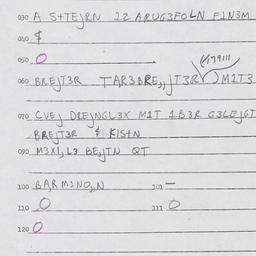 030 A S+TEJRN 12 ARUG3FOLN FIN3M
040 $
050 O
060 BREJT3R TAR3BRE,,JT3R M1T3
070 CVEJ DREJNGL3X M1T 1B3R G3LEJGT
BREJT3R & KIS+N
090 M3X1,L3 BEJTN QT
100 BARM1NO,,N 101 —
110 O 111 O
120 O